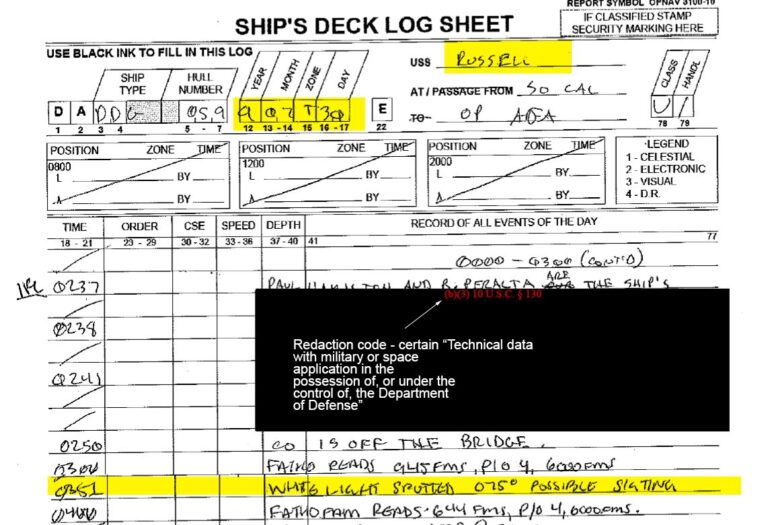 REPORT SYMBOL OPNAV 3100-10
SHIP'S DECK LOG SHEET
IF CLASSIFIED STAMP
SECURITY MARKING HERE
USE BLACK INK TO FILL IN THIS LOG
USS RUSSELL
SHIP TYPE HULL NUMBER YEAR MONTH ZONE DAY
AT / PASSAGE FROM SO CAL
CLASS HANDL
D A DDG 059 9 07 T 30 E
U
TO- OP AREA
1 2 3 4 5 - 7 12 13 - 14 15 16 - 17 22 78 79
POSITION ZONE TIME POSITION ZONE TIME POSITION ZONE TIME
0800 1200 2000
L BY L BY L BY
BY BY BY
·LEGEND
1 - CELESTIAL
2 - ELECTRONIC
3 - VISUAL
4 - D.R.
TIME ORDER CSE SPEED DEPTH RECORD OF ALL EVENTS OF THE DAY
18 - 21 23 - 29 30 - 32 33 - 36 37 - 40 41 77
0000 - 0300 (CONT'D)
0237 PAUL AND R. PERALTA ARE THE SHIP'S
(b)(3) 10 U.S.C. § 130
0238
Redaction code - certain “Technical data
with military or space
application in the
possession of, or under the
control of, the Department
of Defense”
0241
0250 CO IS OFF THE BRIDGE.
0300 FATHO READS 945FMS, P/O 4, 6000FMS
0351 WHITE LIGHT SPOTTED 075° POSSIBLE SIGTING
0400 FATHOFAM READS 644 FMS, P/O 4, 6000FMS.